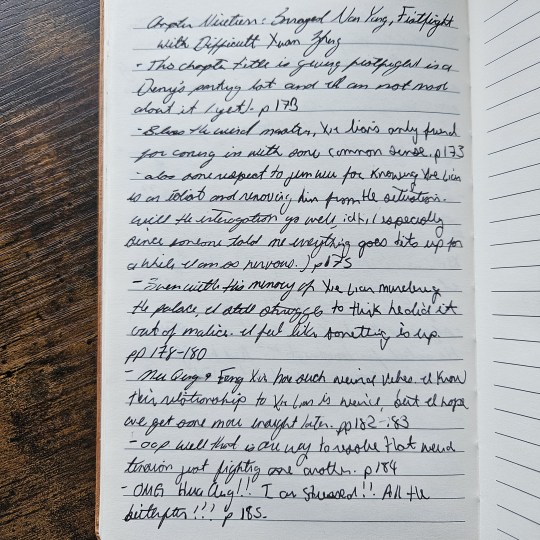 Chapter Nineteen: Enraged Nan Yang, Fistfight
With Difficult Xuan Zhen
- This chapter title is giving fistfight in a
Denny's parking lot and I am not mad
about it (yet). p 173
- Bless the wind master, Xie Lian's only friend
for coming in with some common sense. p 173
- also some respect to Jun Wu for knowing Xie Lian
is an idiot and removing him from the situation.
will the interrogation go well idk, (especially
since someone told me everything goes tits up for
a while I am so nervous.) p 175
- Even with this memory of Xie Lian murdering
the palace, I still struggle to think he did it
out of malice. I feel like something is up.
pp 178-180
- Mu Qing & Feng Xin have such weird vibes. I know
this relationship to Xie Lian is weird, but I hope
we get some more insight later. pp 182-183
- oop well that is one way to resolve that weird
tension just fighting one another. p 184
- OMG Hua Cheng!! I am stressed!! All the
butterflies!!! p 185.